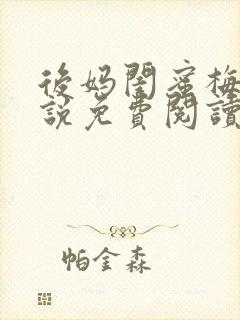 後媽閨蜜梅
說免費閱讀
帕金森